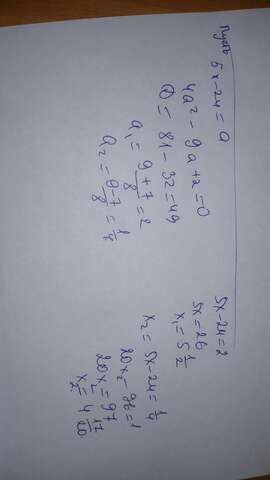 Пусть 5x-24=a
4a²-9a+2=0
D=81-32=49
a₁=9+7/8=2
a₂=9-7/8=1/4
5x-24=2
5x=26
x₁=5 1/2
x₂=5x-24=1/4
20x₂-96=1
20x₂=97
x₂=4 17/20